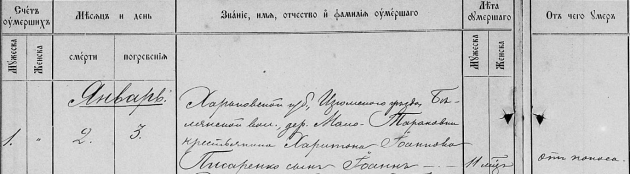 Счетъ оумершихъ
Мѣсяцъ и день
Званіе, имя, отчество и фамилія оумершаго
Лѣта оумершаго
Отъ чего умеръ
Мужеска
Женска
смерти
погребенія
Мужеска
Женска
Январь.
Харьковской губ, Изюмскаго уѣзда,
вол., дер. Мало-
1.
"
2.
3.
крестьянина Харитона Іоаннова
Писаренко сынъ Іоаннъ
11 мѣс
отъ поноса.